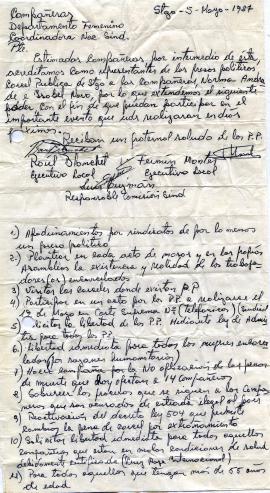 Compañeras Stgo - 5 - Mayo - 1987
Departamento Femenino
Coordinadora Nac Sind.
Pte
Estimadas Compañeras por intermedio de ésta,
acreditamos como representantes de los presos políticos
Carcel Publica de Stgo a las Compañeras Norma
e Isabel por lo que extendemos el siguiente
poder Con el fin de que puedan participar en el
importante evento que uds realizaran en dias
proximos.
Reciban un fraternal saludo de los P.P.
Raúl Blanchet Fermin Montes
Ejecutivo Local Ejecutivo Local
Luis Guzman
Responsable Comisión Sind
1) Apadrinamiento por sindicatos de por lo menos
un preso politico
2) Plantear en cada acto de masas y en las propias
Asambleas la existencia y realidad de los trabaja-
dores (as) encarcelados
3) Visitar las carceles donde existan P.P
4) Participar en un acto por los P.P a realizarse el
de Mayo en Corte Suprema
5) Solicitar la libertad de los P.P. Mediante ley de Amnis-
tia para todos los P.P
6) Libertad inmediata para todas las mujeres encarce-
ladas (por razones humanitarias)
7) Hacer campaña por la NO aplicación de las penas
de muerte que hoy afectan a 14 Compañeros
8) los procesos que se siguen a los Compa-
ñeros que son acusados de entrada ilegal al pais
9) Reactivacion del decreto ley 504 que permite
cambiar la pena de carcel por extrañamiento
10) Solicitar libertad inmediata para todos aquellos
compañeros que estan en malas condiciones de salud
debidamente certificada (Cruz Roja Internacional)
11) Para todos aquellos que tengan mas de 55 años
de edad